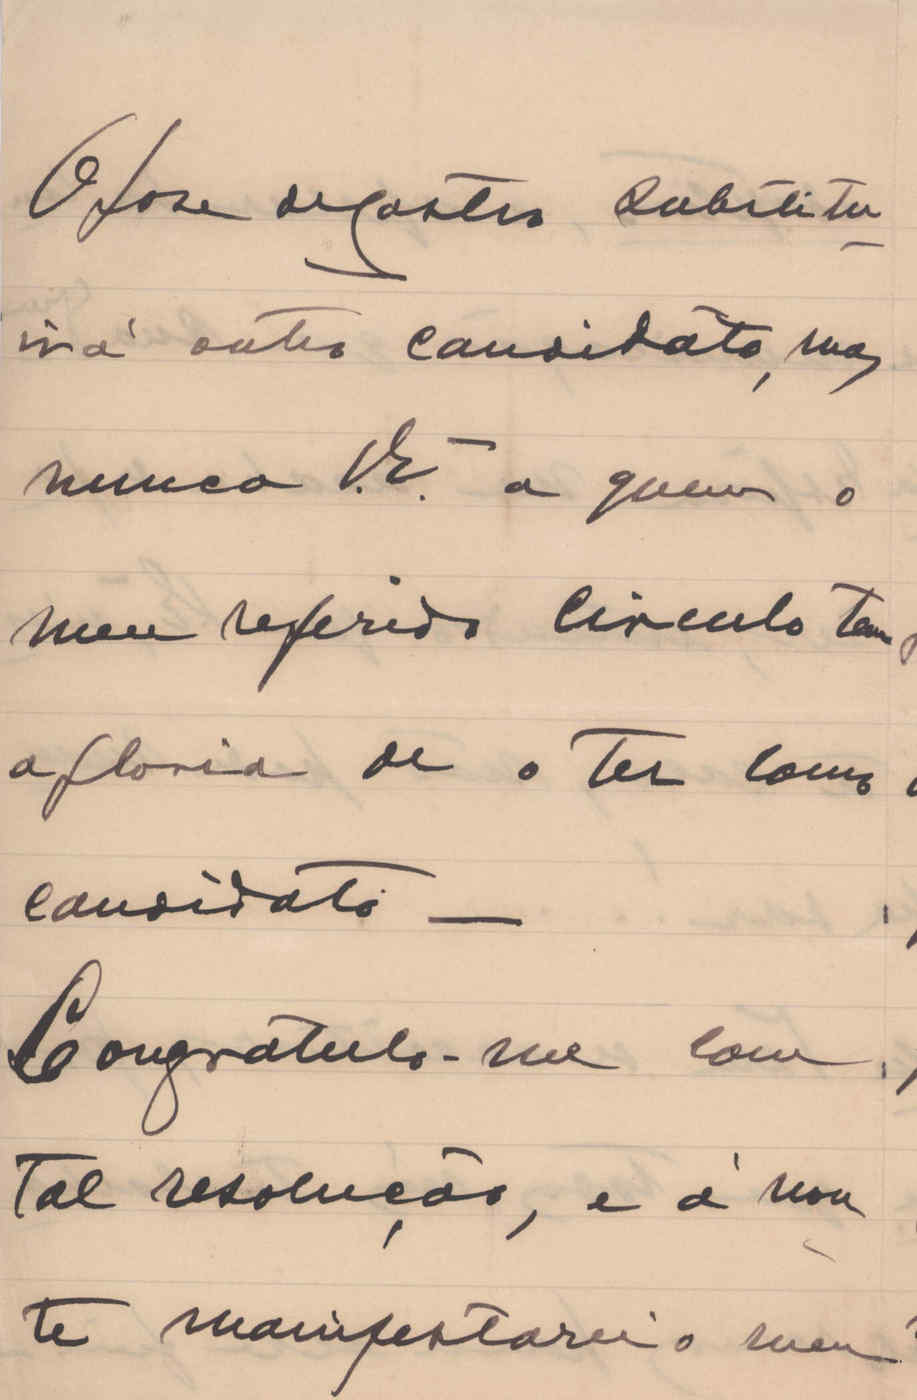 O Jose de Castro substitu
irá outro candidato, mas
nunca V. Eª a quem o
meu referido circulo tem
a gloria de o ter como
candidato —
Congratulo-me com
tal resolução, e á noi
te manifestarei o meu